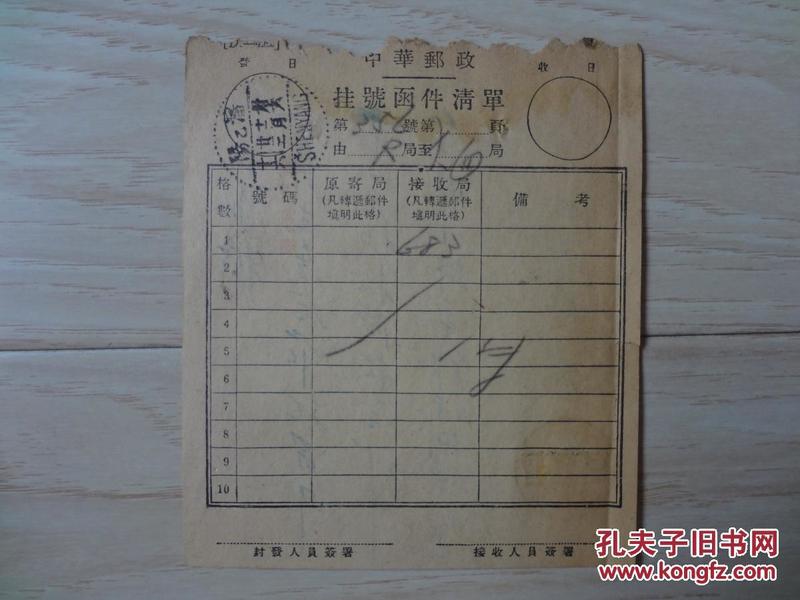 發 日 中華郵政 收 日
挂號函件清單
第 556 號第 頁
由 R 局至 局
SHENYANG
格數 號碼 原寄局 (凡轉遞郵件填明此格) 接收局 (凡轉遞郵件填明此格) 備考
1 683
2
3
4
5
6
7
8
9
10
封發人員簽署 接收人員簽署
孔夫子旧书网
www.kongfz.com